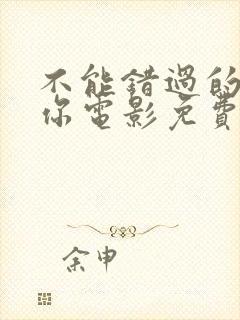 不能錯過的
你電影免費
余申